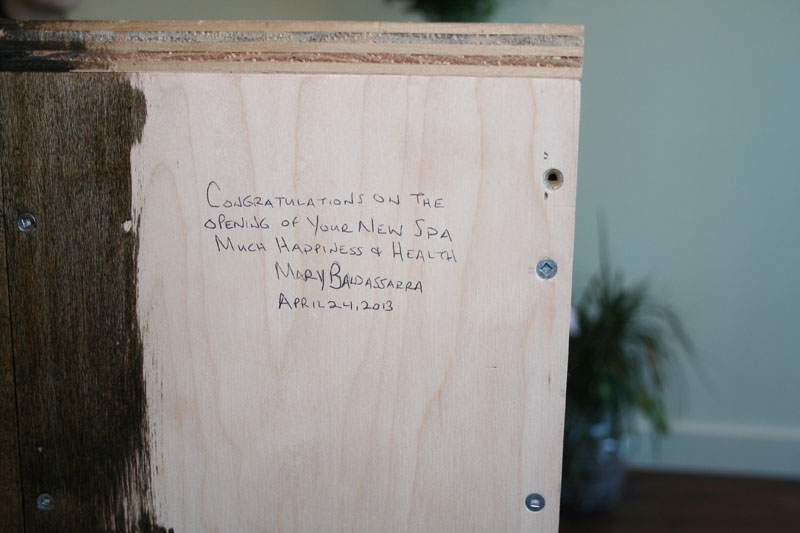 Congratulations on the
opening of your new spa
Much Happiness & Health
Mary Baldassarra
April 24, 2013